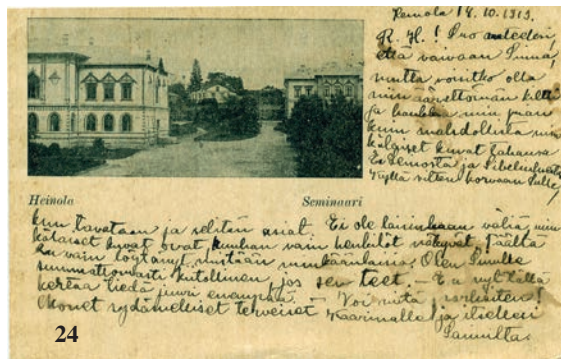 14.10.1913.
R. H.! Suo anteeksi,
että vaivaan Sinua,
mutta voisitko olla
niin äärettömän kiltti
ja hankkia niin pian
kuin mahdollista min
kälaiset kuvat tahansa
ja Sibeliuksesta
Kyllä sitten korvaan Sulle,
Heinola Seminaari
kun tavataan ja selitän asiat. Ei ole laisinkaan väliä, min
kälaiset kuvat ovat, kunhan vain henkilöt näkyvät. Täältä
en vain löytänyt mitään minkäänlaisia. Olen Sinulle
summattomasti kiitollinen, jos sen teet. — En nyt tällä
kertaa tiedä juuri enempää. Voi mitä parhaiten!
Monet sydämelliset terveiset Kaarinalle ja itsellesi
24